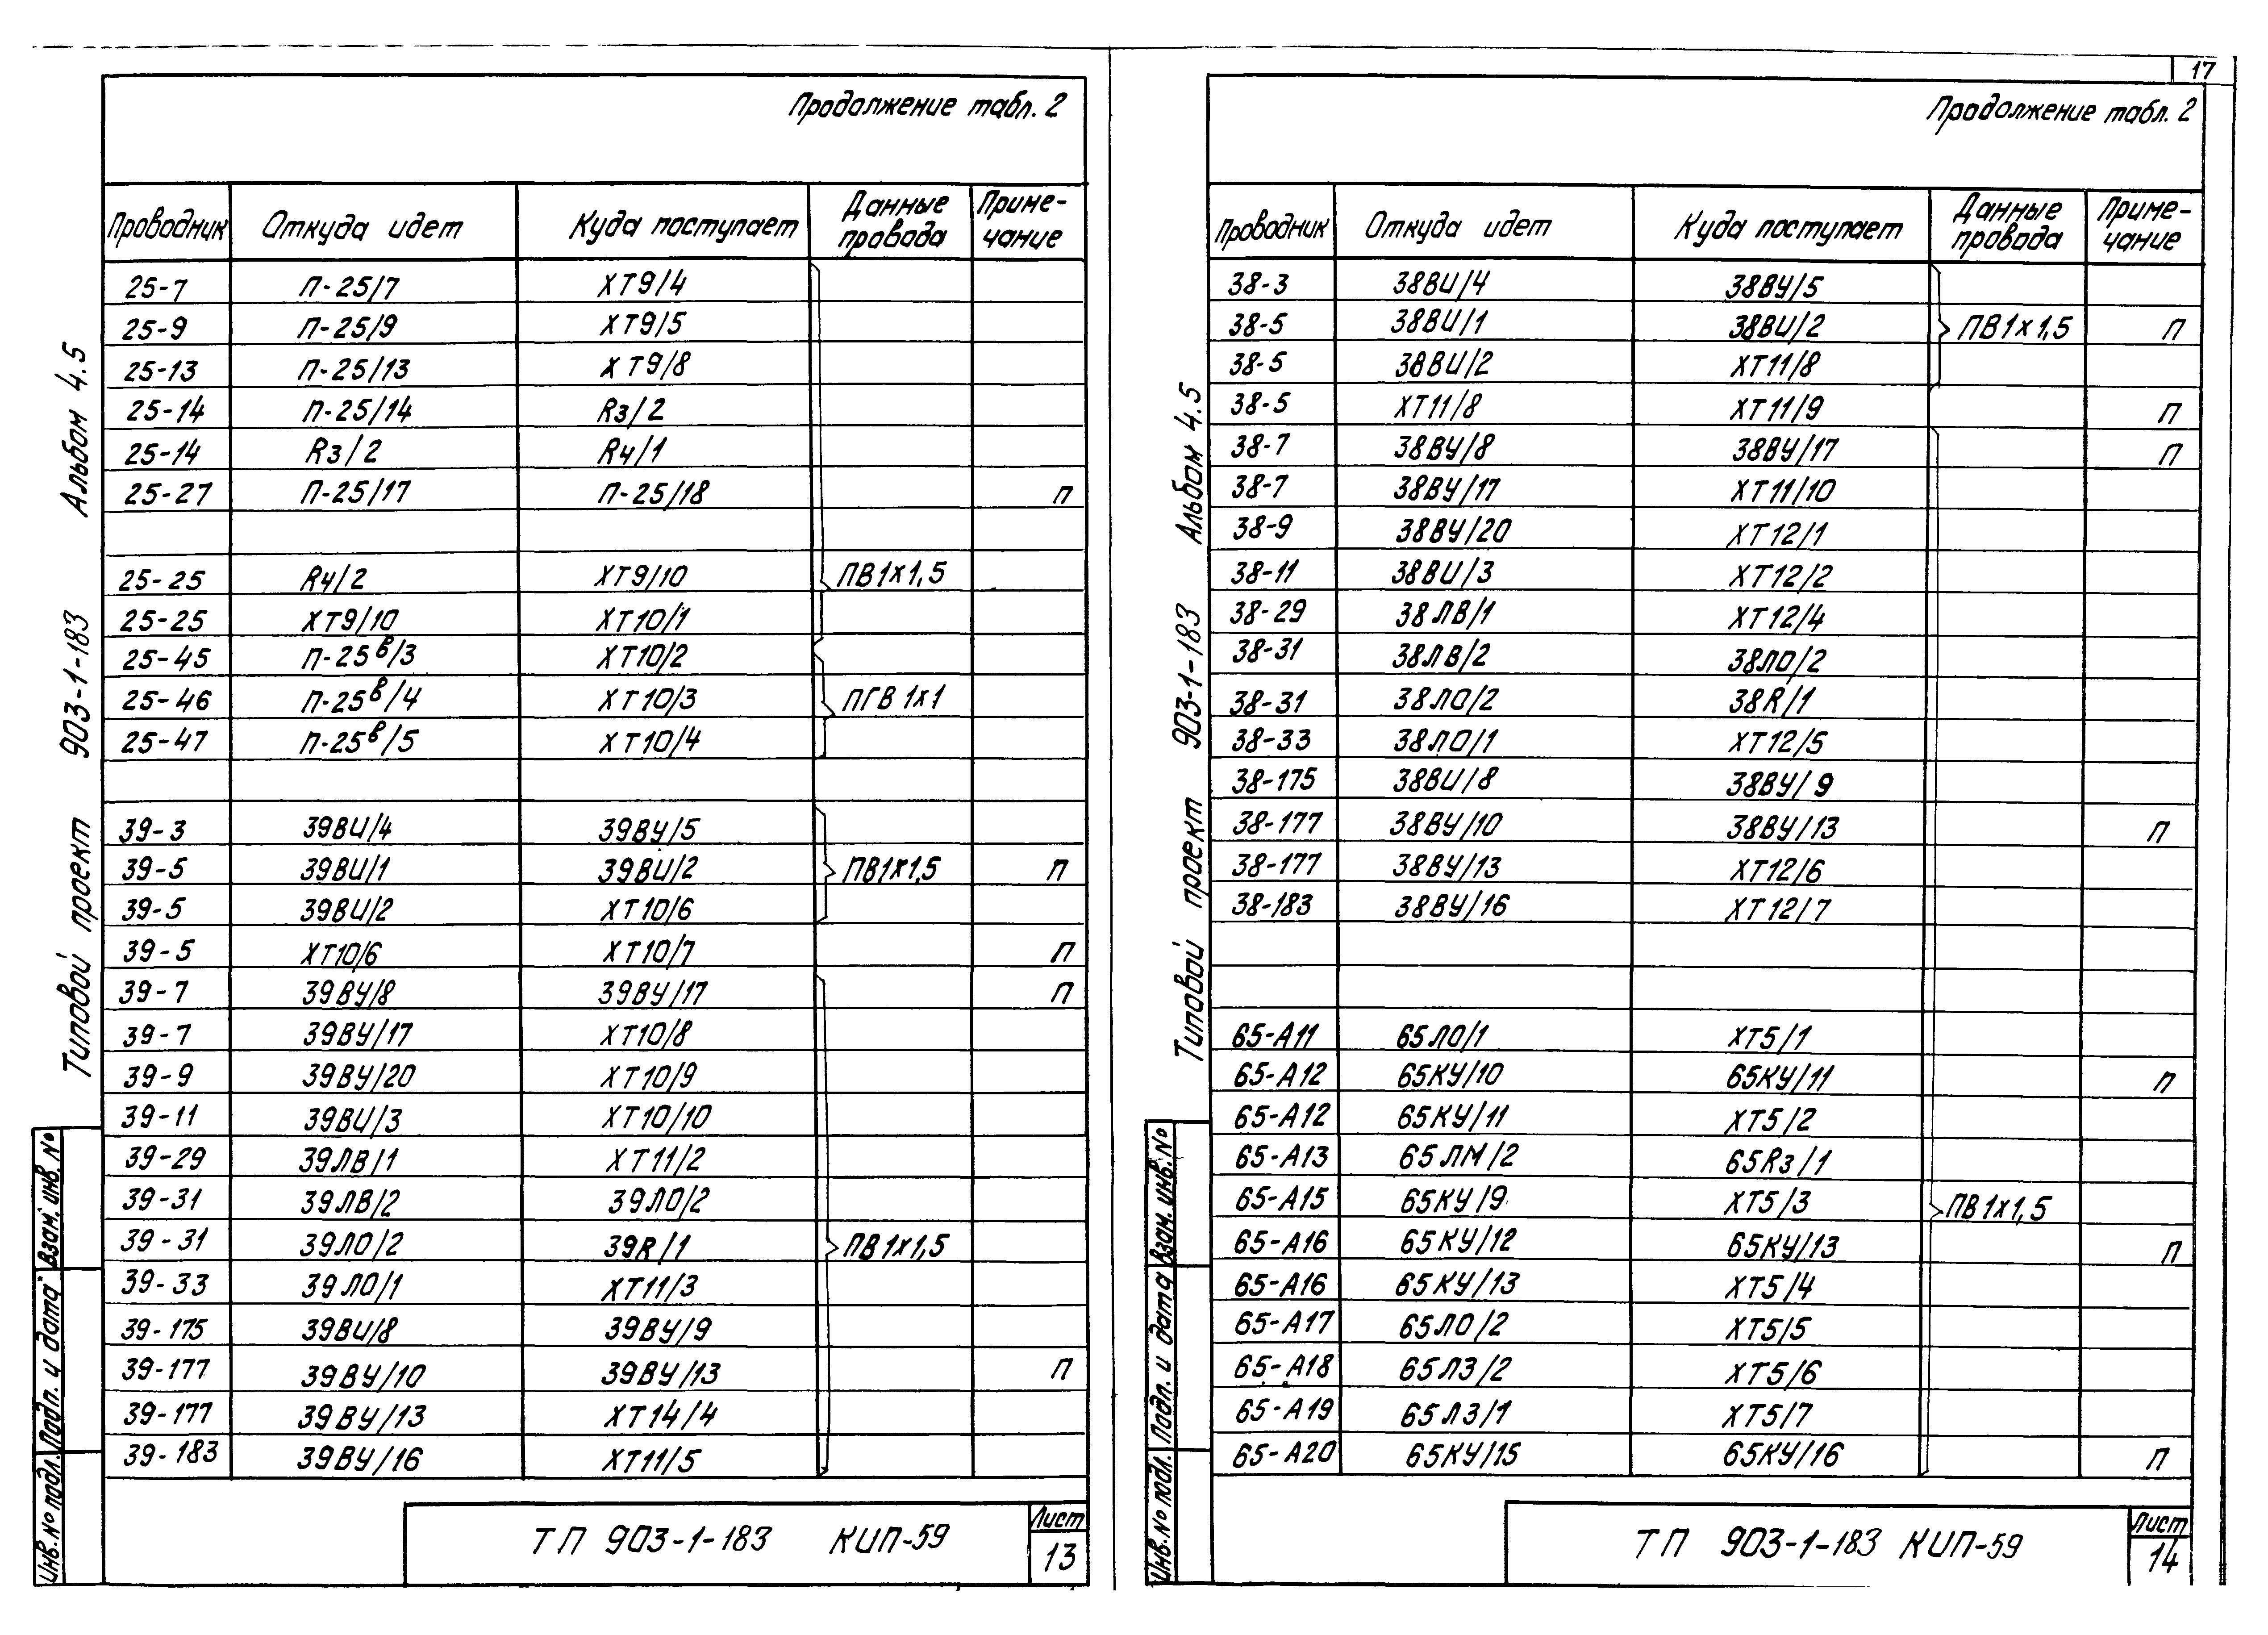 17
Альбом 4.5
Типовой проект 903-1-183
Взам. инв. №
Подп. и дата
Инв. № подл.
Продолжение табл. 2
Проводник Откуда идет Куда поступает Данные провода Примечание
25-7 П-25/7 ХТ9/4
25-9 П-25/9 ХТ9/5
25-13 П-25/13 ХТ9/8
25-14 П-25/14 R3/2
25-14 R3/2 R4/1
25-27 П-25/17 П-25/18 П
25-25 R4/2 ХТ9/10 ПВ1х1,5
25-25 ХТ9/10 ХТ10/1
25-45 П-25в/3 ХТ10/2
25-46 П-25в/4 ХТ10/3 ПГВ 1х1
25-47 П-25в/5 ХТ10/4
39-3 39ВИ/4 39ВУ/5
39-5 39ВИ/1 39ВИ/2 ПВ1х1,5 П
39-5 39ВИ/2 ХТ10/6
39-5 ХТ10/6 ХТ10/7 П
39-7 39ВУ/8 39ВУ/17 П
39-7 39ВУ/17 ХТ10/8
39-9 39ВУ/20 ХТ10/9
39-11 39ВИ/3 ХТ10/10
39-29 39ЛВ/1 ХТ11/2
39-31 39ЛВ/2 39ЛО/2
39-31 39ЛО/2 39R/1 ПВ1х1,5
39-33 39ЛО/1 ХТ11/3
39-175 39ВИ/8 39ВУ/9
39-177 39ВУ/10 39ВУ/13 П
39-177 39ВУ/13 ХТ14/4
39-183 39ВУ/16 ХТ11/5
ТП 903-1-183 КИП-59
Лист
13
Альбом 4.5
Типовой проект 903-1-183
Взам. инв. №
Подп. и дата
Инв. № подл.
Продолжение табл. 2
Проводник Откуда идет Куда поступает Данные провода Примечание
38-3 38ВИ/4 38ВУ/5
38-5 38ВИ/1 38ВИ/2 ПВ1х1,5 П
38-5 38ВИ/2 ХТ11/8
38-5 ХТ11/8 ХТ11/9 П
38-7 38ВУ/8 38ВУ/17 П
38-7 38ВУ/17 ХТ11/10
38-9 38ВУ/20 ХТ12/1
38-11 38ВИ/3 ХТ12/2
38-29 38ЛВ/1 ХТ12/4
38-31 38ЛВ/2 38ЛО/2
38-31 38ЛО/2 38R/1
38-33 38ЛО/1 ХТ12/5
38-175 38ВИ/8 38ВУ/9
38-177 38ВУ/10 38ВУ/13 П
38-177 38ВУ/13 ХТ12/6
38-183 38ВУ/16 ХТ12/7
65-А11 65ЛО/1 ХТ5/1
65-А12 65КУ/10 65КУ/11 П
65-А12 65КУ/11 ХТ5/2
65-А13 65ЛМ/2 65R3/1
65-А15 65КУ/9 ХТ5/3 ПВ1х1,5
65-А16 65КУ/12 65КУ/13 П
65-А16 65КУ/13 ХТ5/4
65-А17 65ЛО/2 ХТ5/5
65-А18 65ЛЗ/2 ХТ5/6
65-А19 65ЛЗ/1 ХТ5/7
65-А20 65КУ/15 65КУ/16 П
ТП 903-1-183 КИП-59
Лист
14